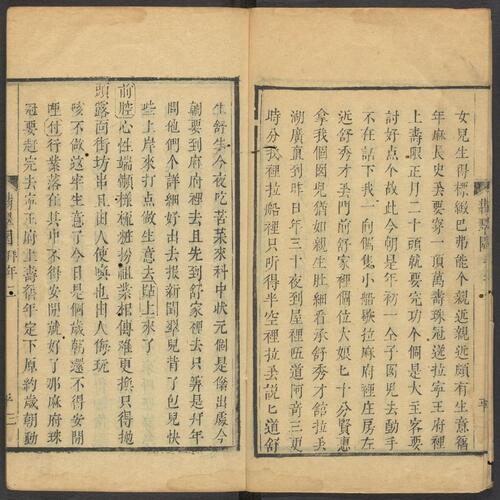 女兒生得標緻巴帶能个親近親近頗有生意舊
年麻長史叐要穿一頂萬壽珠冠送拉寧王府裡
上壽限正月二十頭就要完功个個是大主客要
討好点个故此今朝是年初一仝子囡兒去動手
不在話下我一向僱隻小船歇拉麻府裡庄房左
近舒秀才叐門前舒家裡個位大娘匕十分賢惠
拿我個囡兒猶如親生肚細看承舒秀才館拉叐
湖廣直到昨日年三十夜到屋裡伍道阿育三更
時分我裡拉船裡只所得半空裡拉叐説匕道舒
生舒生今夜吃苦菜來科中狀元個是儕出處今
朝要到麻府裡去且先到舒家裡去只筭是拜年
問他們个詳細好出去報新聞翠兒背了包兒快
些上岸來打点做生意去陸上來了
前腔心性端懶樣粧粉扮祖業相傳難更換只得拋
頭露面街坊串且由人使喚也由人侮玩
咳不做這半生意子今日是何歲朝還不得安閒
唖付行業落在其中不得安閒就好了那麻府珠
冠要趕完去寧王府上壽舊年定下原約歲朝動